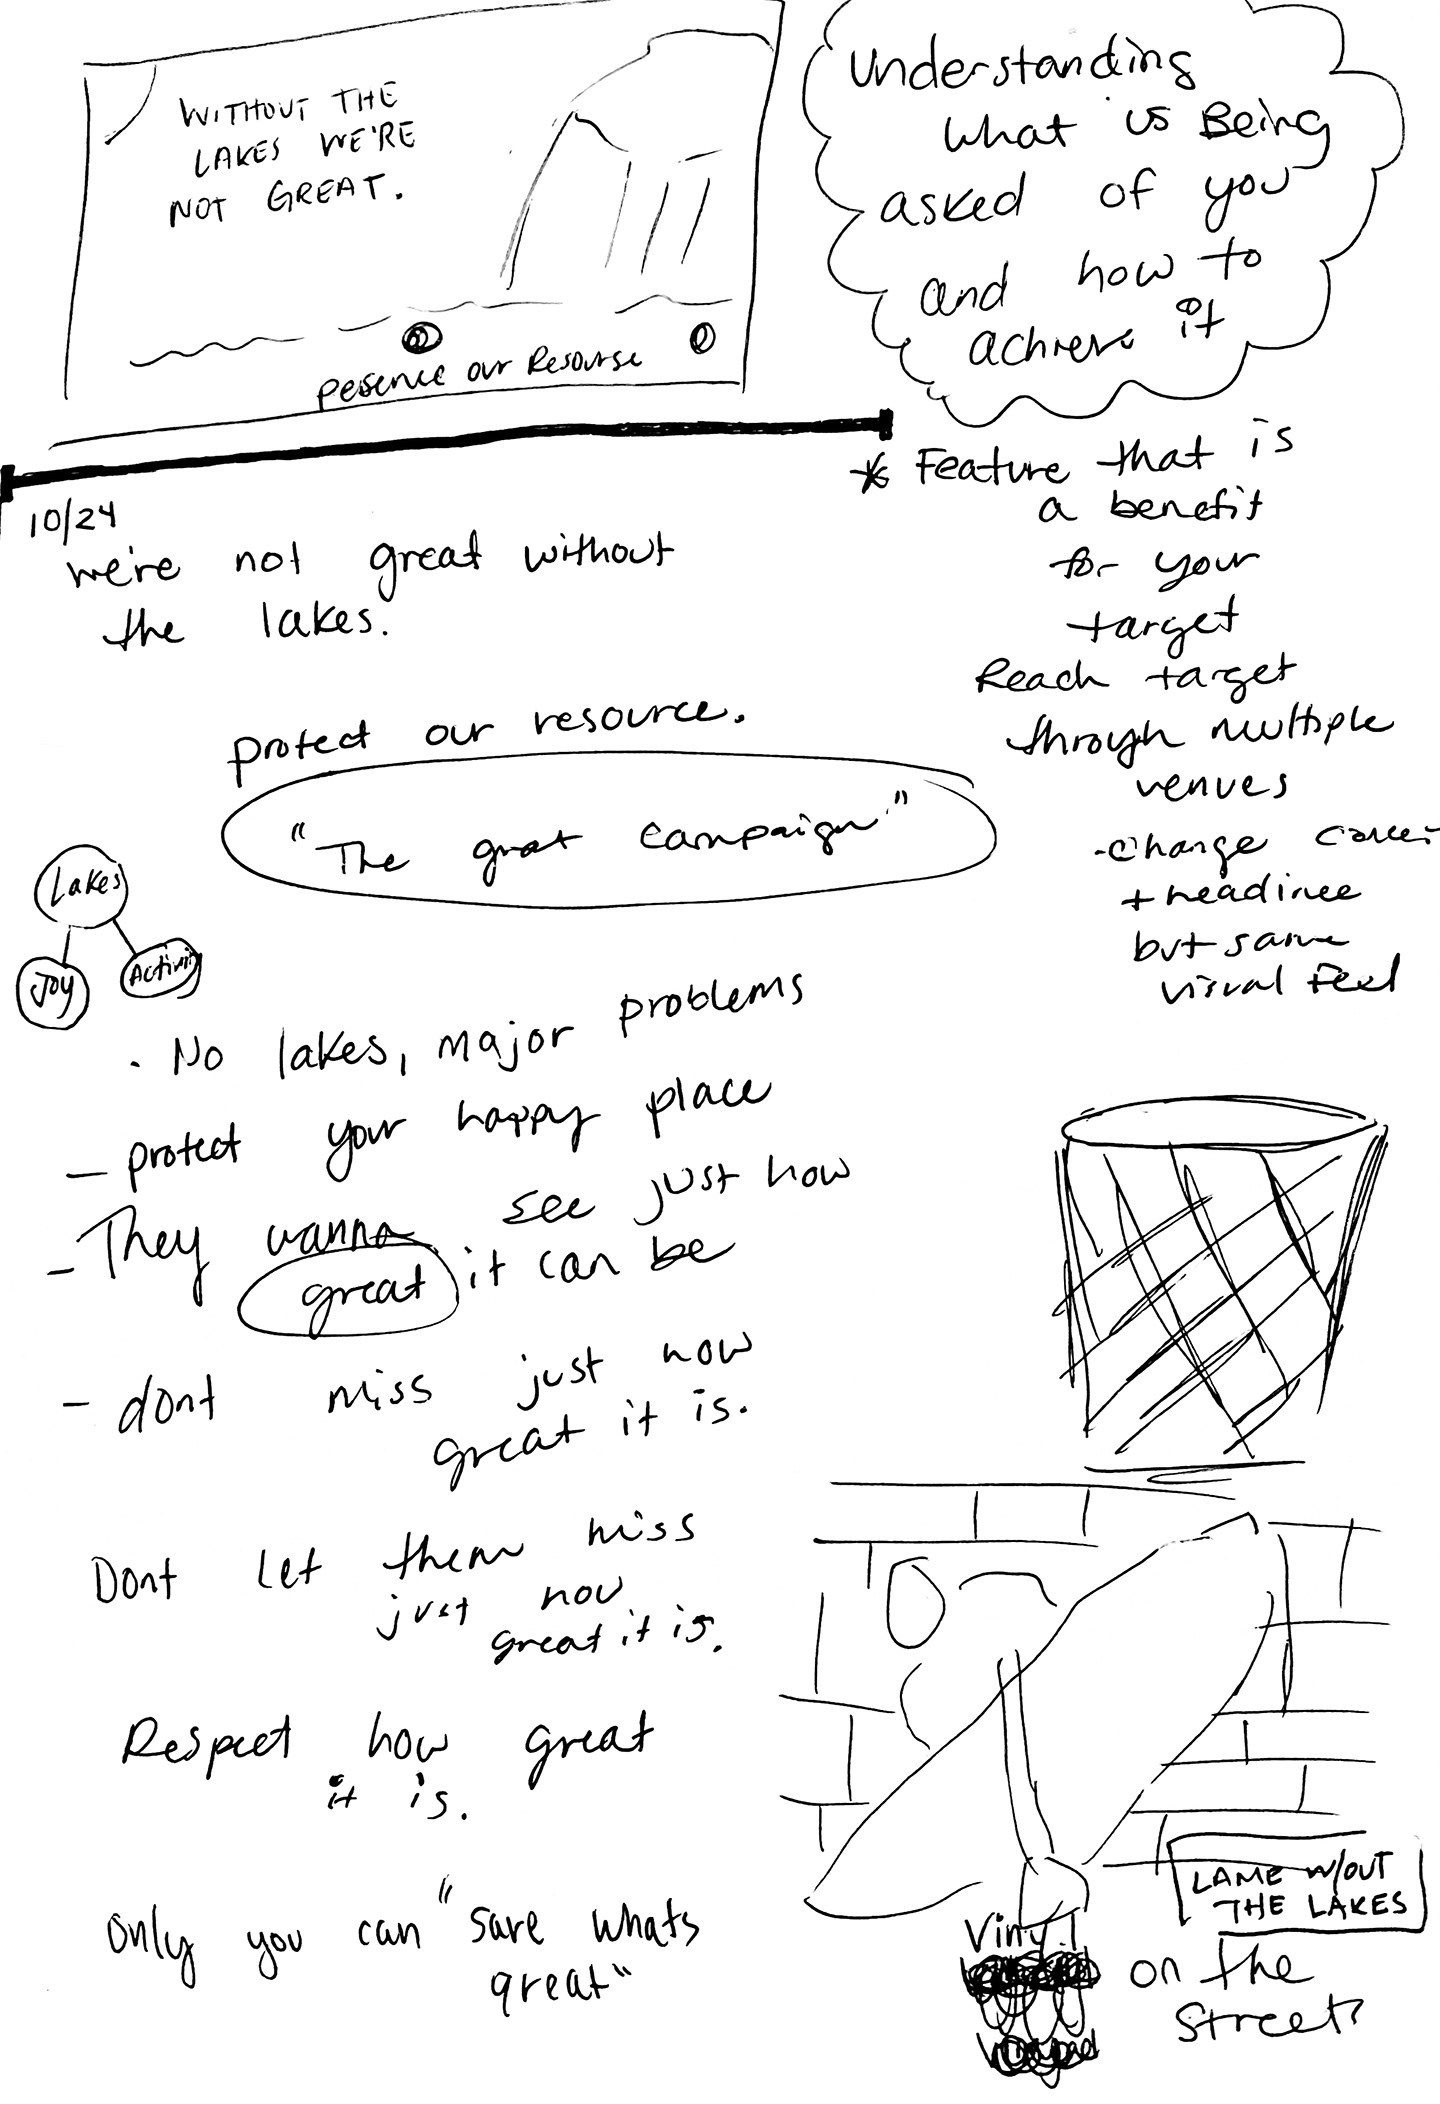 WITHOUT THE
LAKES WE'RE
NOT GREAT.
pesence our Resourse
Understanding
what is Being
asked of you
and how to
achieve it
* Feature that is
a benefit
for your
target
Reach target
through multiple
venues
-change
+ headinee
but same
visual feel
10/24
we're not great without
the lakes.
protect our resource.
"The great campaign"
Lakes
Joy
Activity
· No lakes, major problems
- protect your happy place
- They wanna see just how
great it can be
- dont miss just how
great it is.
Dont let them miss
just how
great it is.
Respect how great
it is.
Only you can "save whats
great"
LAME W/OUT
THE LAKES
Vinyl
on the
street?